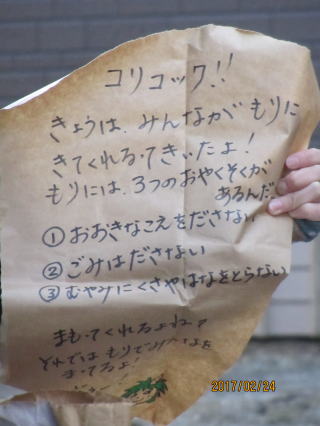 コリコック!!
きょうは、みんなが もりに
きてくれるってきいたよ!
もりには、3つのおやくそくが
あるんだ。
①おおきなこえをださない
②ごみはださない
③むやみにくさやはなをとらない
まもってくれるよね?
それでは もりでみんなを
まってるよ!
2017/02/24